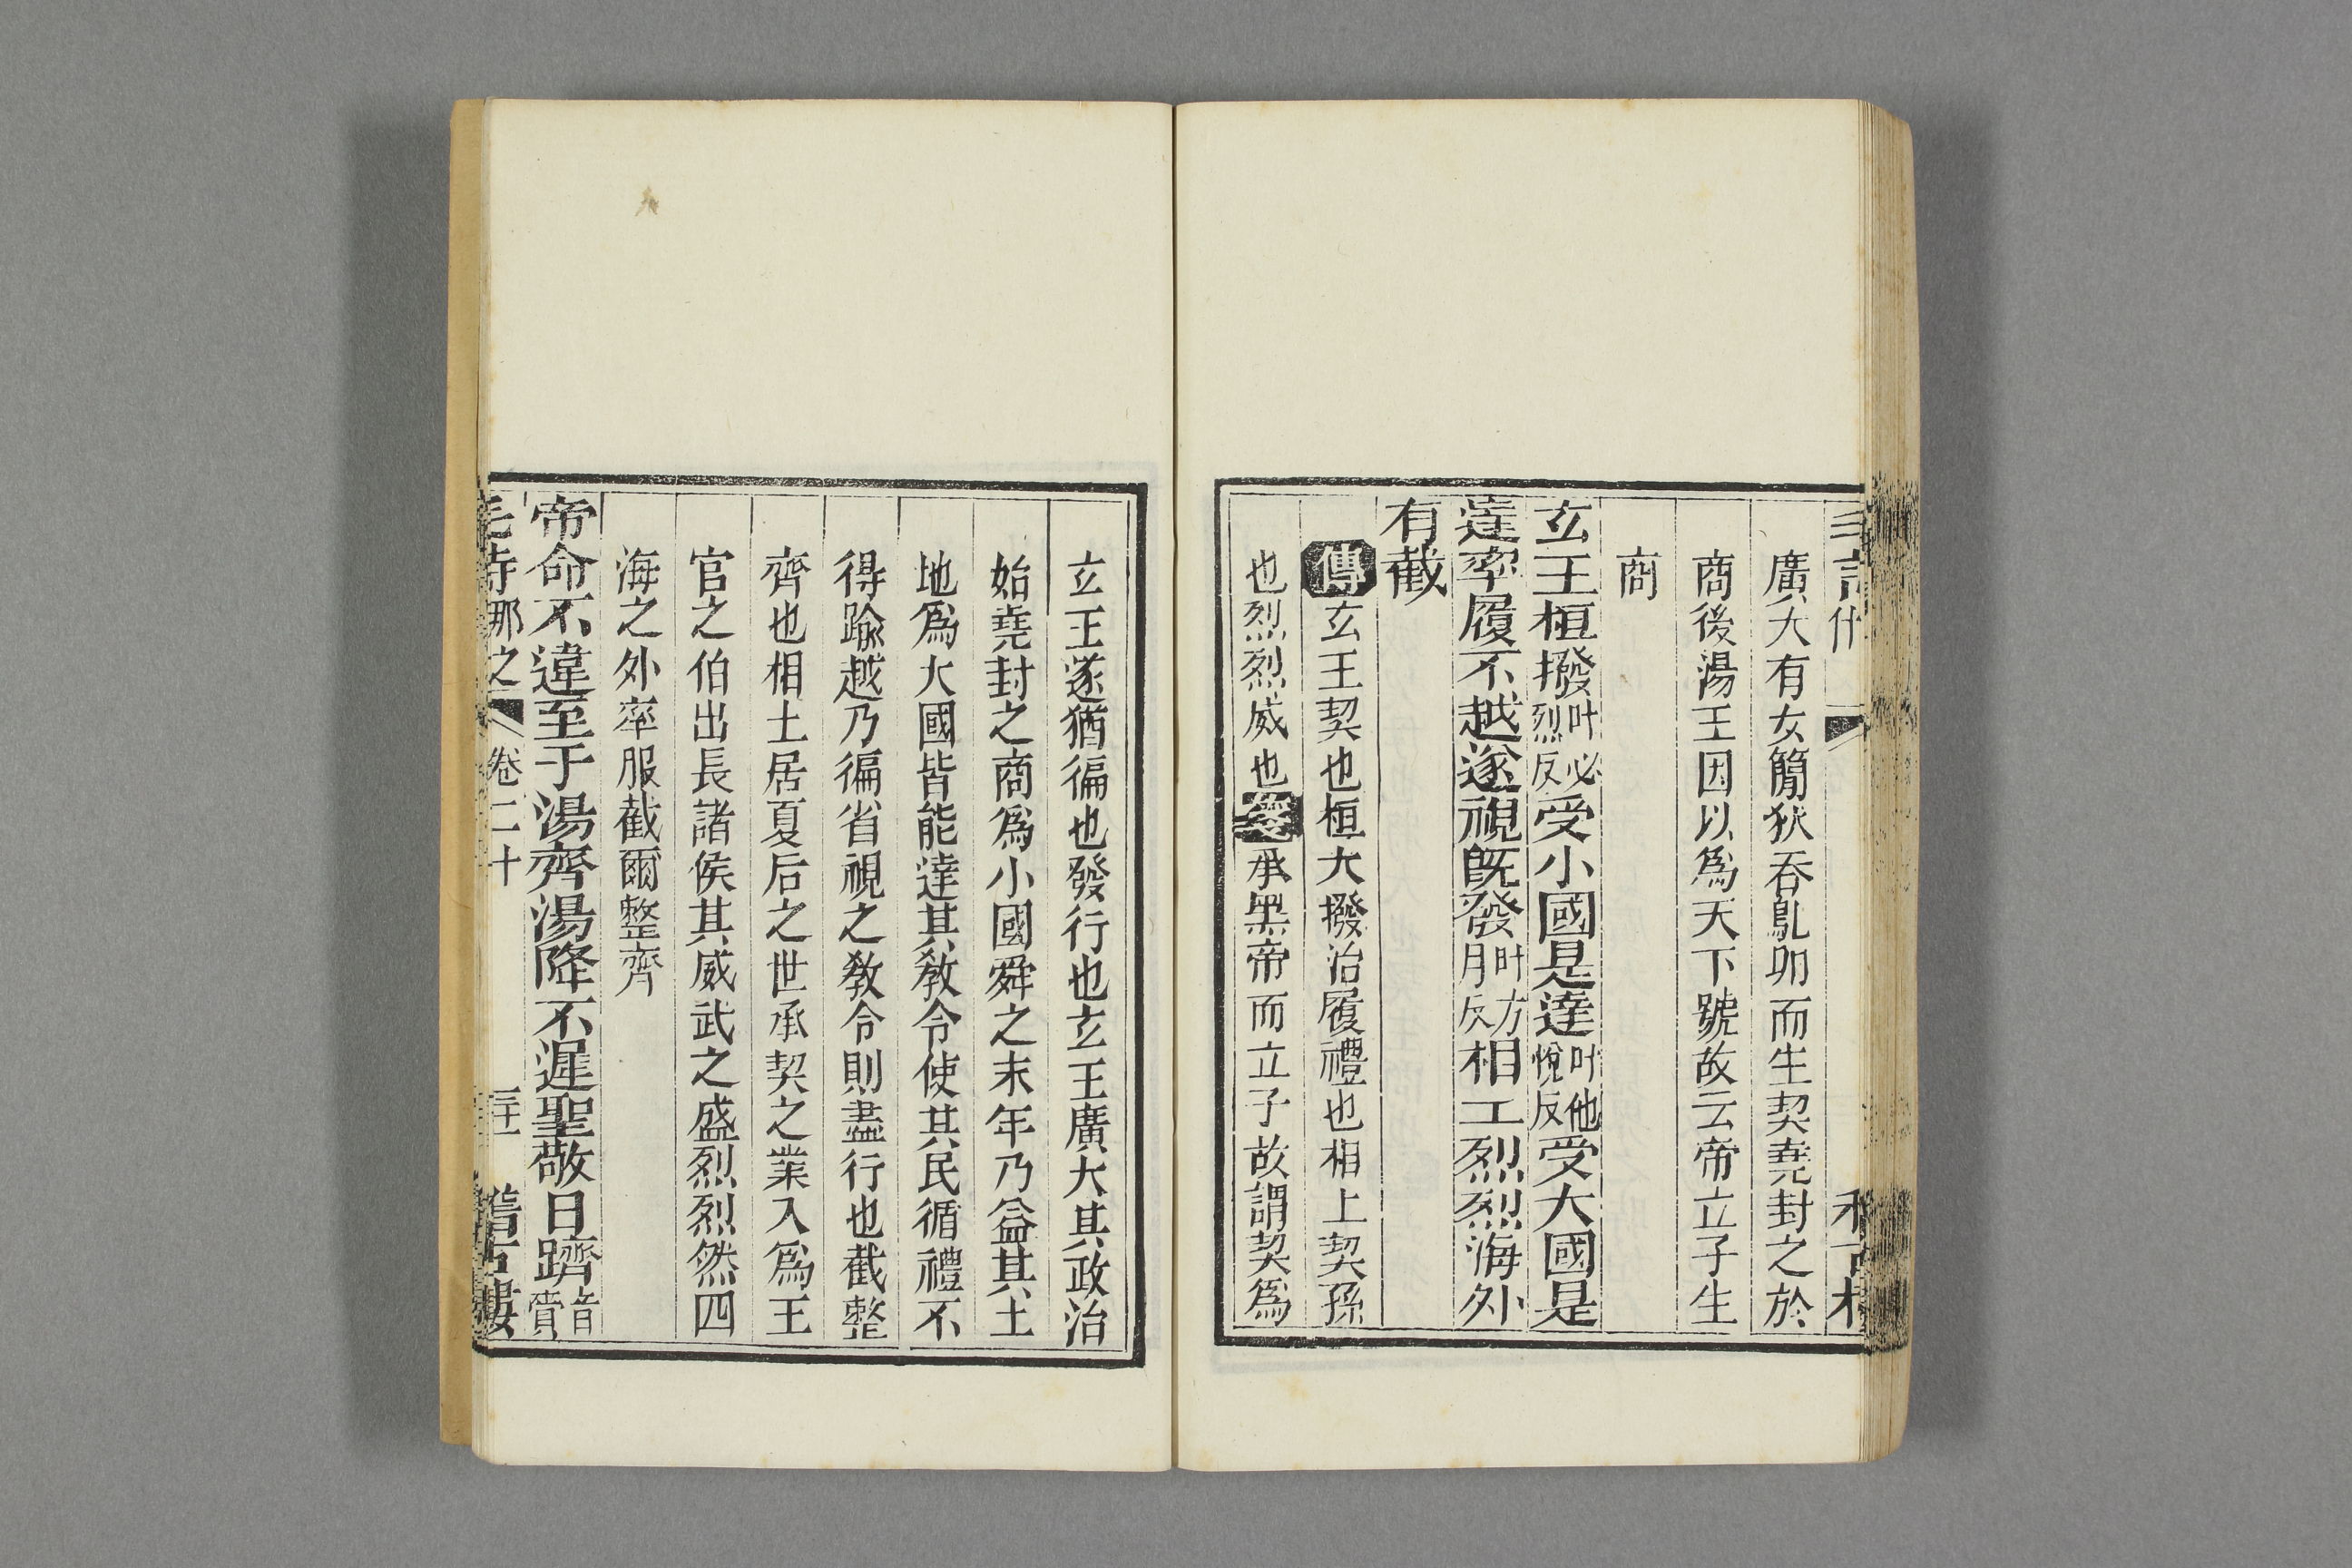 廣大有女簡狄吞鳦卵而生契堯封之於
商後湯王因以爲天下號故云帝立子生
商
玄王桓撥叶必烈反受小國是達叶他悅反受大國是
達率履不越遂視旣發叶方月反相土烈烈海外
有截
傳玄王契也桓大撥治履禮也相土契孫
也烈烈威也箋承黑帝而立子故謂契爲
玄王遂猶徧也發行也玄王廣大其政治
始堯封之商爲小國舜之末年乃益其土
地爲大國皆能達其教令使其民循禮不
得踰越乃徧省視之教令則盡行也截整
齊也相土居夏后之世承契之業入爲王
官之伯出長諸侯其威武之盛烈烈然四
海之外率服截爾整齊
帝命不違至于湯齊湯降不遲聖敬日躋音賷
毛詩那之 卷二十 稽古樓